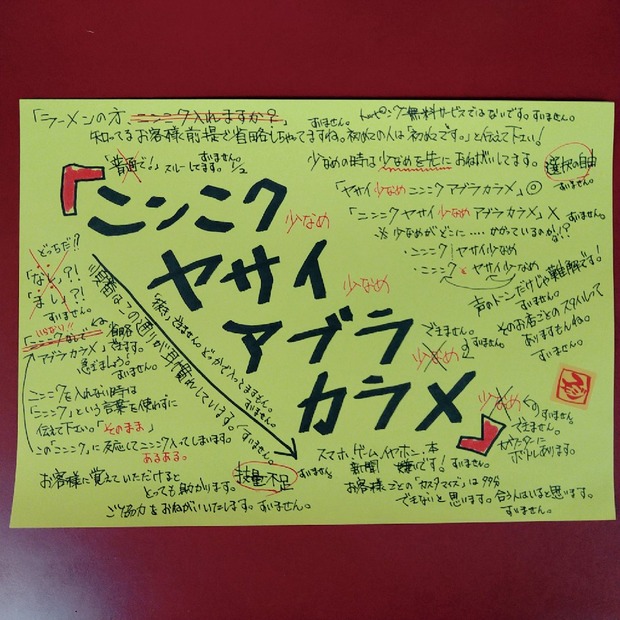 「ラーメンの方、ニンニク入れますか?」すいません。
知ってるお客様く前提で省略しちゃってますね。初めての人は「初めてです。」と伝えて下さい!
トッピング無料サービスではないです。すいません。
「普通で!」スルーしてます。すいません。
少なめの時は少なめを先におねがいしてます。選択の自由
すいません。
「ヤサイ少なめニンニクアブラカラメ」◎
「ニンニクヤサイ少なめアブラカラメ」×すいません。
※少なめがどこに……かかっているのかな!?
・ニンニク/ヤサイ少なめ
・ニンニクとヤサイ少なめ
声のトーンだけじゃ難解です!
すいません。
そのお店ごとのスタイルって
ありますもんね。
すいません。
「ニンニク
少なめ
ヤサイ
少なめ
アブラ
少なめ
できません。
すいません。
カラメ」
少なめ
すいません。
できません。
カウンターに
ボトルあります。
どっちだ!?
「なし」?!
「まし」?!
すいません。
いらない!!
「ニンニクなしで
アブラカラメ」
省略
できます。
急ぎましょう!
すいません。
順番はこの通りが耳慣れしています。すいません。
ニンニクを入れない時は
「ニンニク」という言葉を使わずに
伝えて下さい。「そのまま」
このニンニク"に反応してニンニク入ってしまいます。
あるある。
お客様に覚えていただけると
とっても助かります。
ご協力をおねがいいたします。すいません。
技量不足
すいません。
スマホ、ゲーム、イヤホン、本
新聞 嫌です!すいません。
お客様ごとの「カスタマイズ」は99%
できないと思います。合う人はいると思います。
すいません。